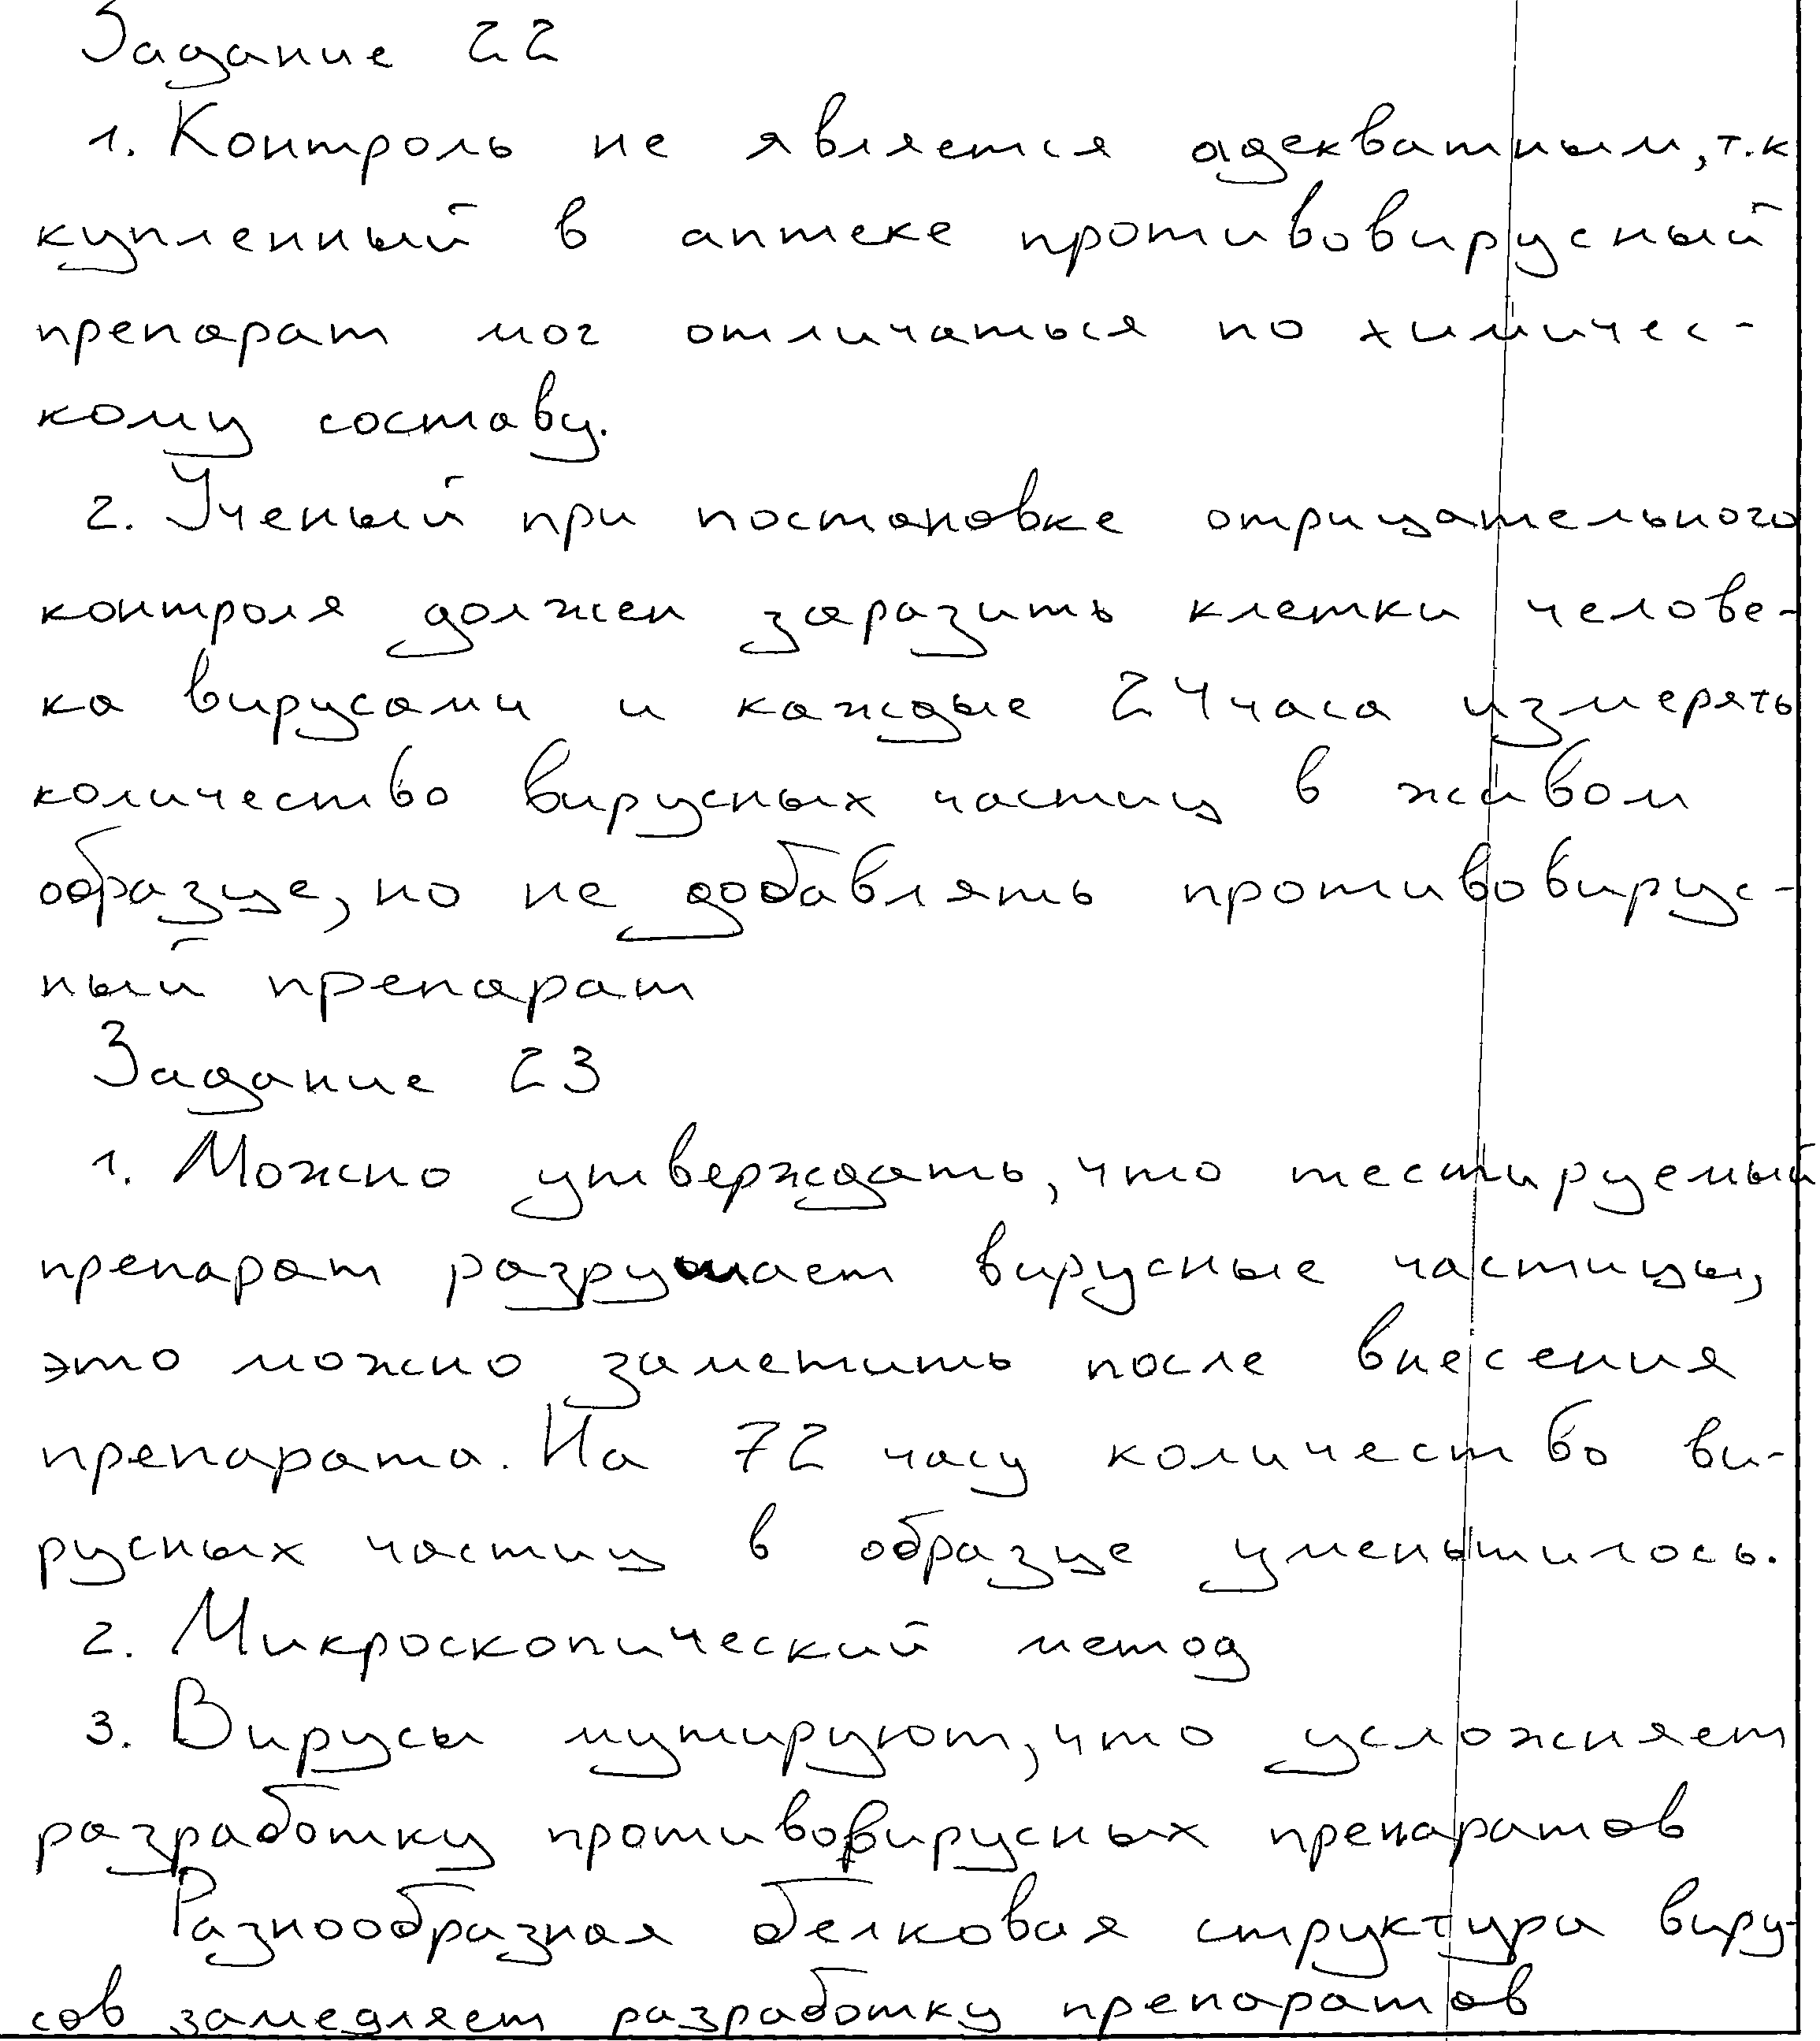 Задание 22
1. Контроль не является адекватным, т.к
купленный в аптеке противовирусный
препарат мог отличаться по химичес-
кому составу.
2. Ученый при постановке отрицательного
контроля должен заразить клетки челове-
ка вирусами и каждые 24 часа измерять
количество вирусных частиц в живом
образце, но не добавлять противовирус-
ный препарат
Задание 23
1. Можно утверждать, что тестируемый
препарат разрушает вирусные частицы,
это можно заметить после внесения
препарата. На 72 часу количество ви-
русных частиц в образце уменьшилось.
2. Микроскопический метод
3. Вирусы мутируют, что усложняет
разработку противовирусных препаратов
Разнообразная белковая структура виру-
сов замедляет разработку препаратов